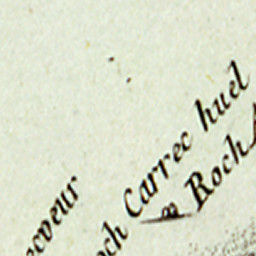 ecveur
och Carrec huel
Roch